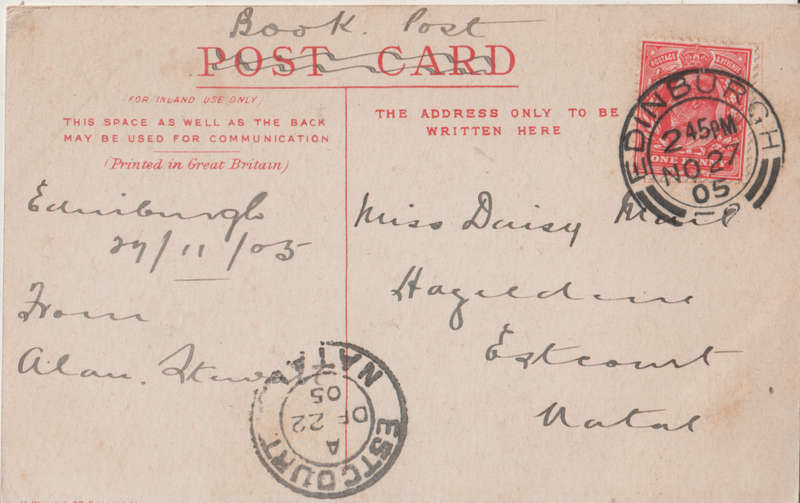 Book. Post
POST CARD
(FOR INLAND USE ONLY)
THIS SPACE AS WELL AS THE BACK
MAY BE USED FOR COMMUNICATION
(Printed in Great Britain)
THE ADDRESS ONLY TO BE
WRITTEN HERE
POSTAGE REVENUE
ONE PENNY
EDINBURGH
2 45PM
NO 27
05
Edinburgh
27/11/05
From
Alan. Stewart
Miss Daisy
Estcourt
Natal
ESTCOURT
NATAL
A
DE 22
05